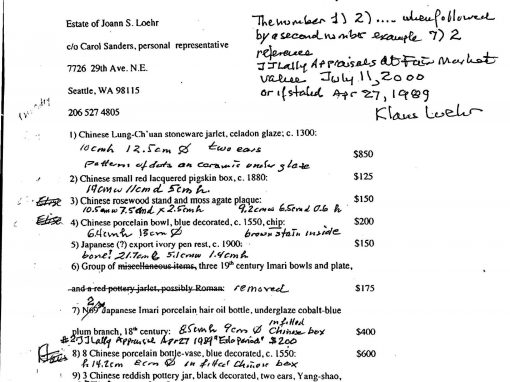 Estate of Joann S. Loehr
c/o Carol Sanders, personal representative
7726 29th Ave. N.E.
Seattle, WA 98115
206 527 4805
The number 1) 2) .... when followed
by a second number example 7) 2
reference
JJLally Appraisals at Fair Market
value July 11, 2000
or if stated Apr 27, 1989
Klaus Loehr
1) Chinese Lung-Ch'uan stoneware jarlet, celadon glaze; c. 1300: $850
10cmh 12.5cm Ø two ears
pattern of dots on ceramic under glaze
2) Chinese small red lacquered pigskin box, c. 1880: $125
19cmw 11cmd 5cmh.
3) Chinese rosewood stand and moss agate plaque: $150
10.5cmw 7.5cmd x 2.5cmh 9.2cmw 6.5cmd 0.6 h
Elise 4) Chinese porcelain bowl, blue decorated, c. 1550, chip: $200
6.4cmh 13cm Ø brown stain inside
5) Japanese (?) export ivory pen rest, c. 1900: $150
bone? 21.7cmL 5.1cmw 1.4cmh
6) Group of miscellaneous items, three 19th century Imari bowls and plate,
and a red pottery jarlet, possibly Roman: removed $175
7) 2 Japanese Imari porcelain hair oil bottle, underglaze cobalt-blue
plum branch, 18th century: 8.5cmh 9cm Ø in fitted Chinese box $400
#2 JJLally Appraisal Apr 27 1989 "Edo period" $200
8) 8 Chinese porcelain bottle-vase, blue decorated, c. 1550: $600
h. 14.2cm 8cm Ø in fitted Chinese box
9) 3 Chinese reddish pottery jar, black decorated, two ears, Yang-shao,